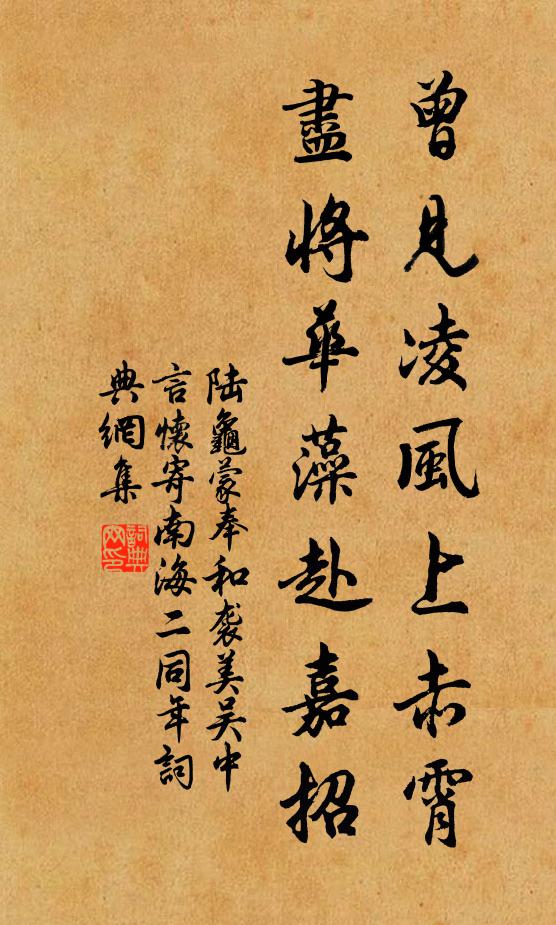 曾見凌風上赤霄
盡將華藻赴嘉招
陆龜蒙奉和袭美吴中
言懷寄南海二同年詞
典網集
詞典网印